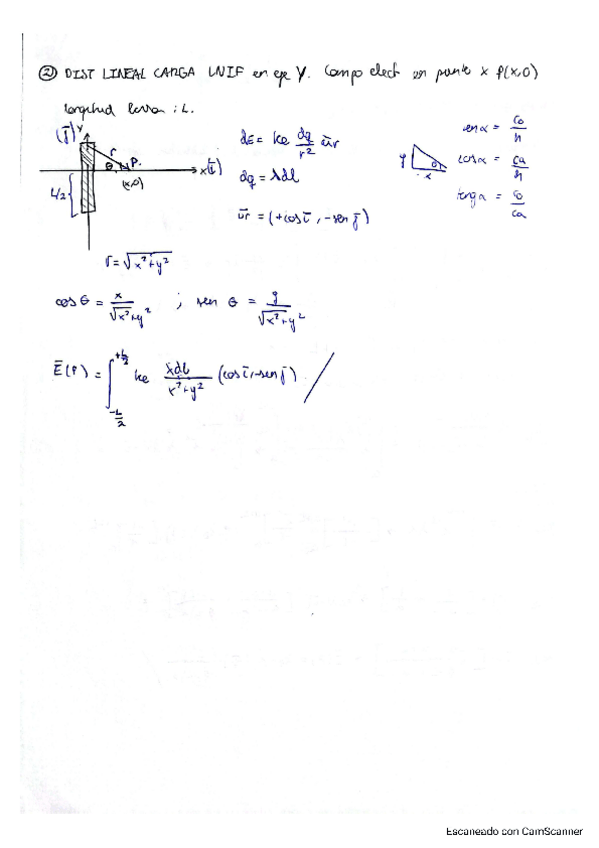 ② DIST LINEAL CARGA UNIF en eje Y. Campo elect en punto x P(x,0)
longitud barra : L.
(j̄) y
r
θ
P.
x(ī)
(x,0)
L/2
dE = ke dq/r² ūr
dq = λdl
ūr = (+cos ī, -sen j̄)
y
θ
x
sen α = co/h
cos α = ca/h
tang α = co/ca
r = √(x²+y²)
cos θ = x/√(x²+y²) ; sen θ = y/√(x²+y²)
Ē(P) = ∫ -L/2 +L/2 ke λdl/(x²+y²) (cos ī, -sen j̄)
Escaneado con CamScanner